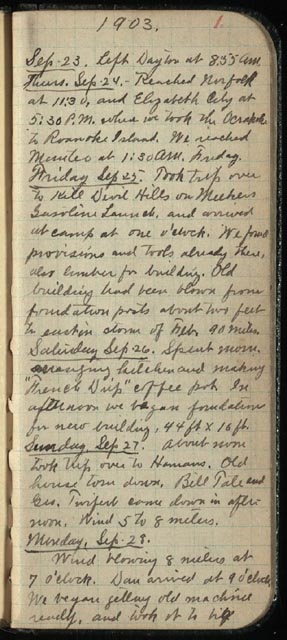 1903. 1.
Sep. 23. Left Dayton at 8:55 A.M.
Thurs. Sep. 24. - Reached Norfolk
at 11:30, and Elizabeth City at
5:30 P.M. where we took the Ocracoke
to Roanoke Island. We reached
Manteo at 1:30 A.M. Friday.
Friday Sep. 25. Took trip over
to Kill Devil Hills on Meekins
Gasoline Launch, and arrived
at camp at one o'clock. We found
provisions and tools already there,
also lumber for building. Old
building had been blown from
foundation posts about two feet
to in storm of Feb. 90 miles.
Saturday Sep 26. Spent morn.
arranging kitchen and making
"French Drip" coffee pot. In
afternoon we began foundation
for new building, 44 ft x 16 ft.
Sunday Sep. 27. About noon
took trip over to Hamans. Old
house torn down. Bill Tate and
Geo. come down in after-
noon. Wind 5 to 8 meters.
Monday, Sep. 28.
Wind blowing 8 meters at
7 o'clock. Dan arrived at 9 o'clock.
We began getting old machine
ready, and took it to big